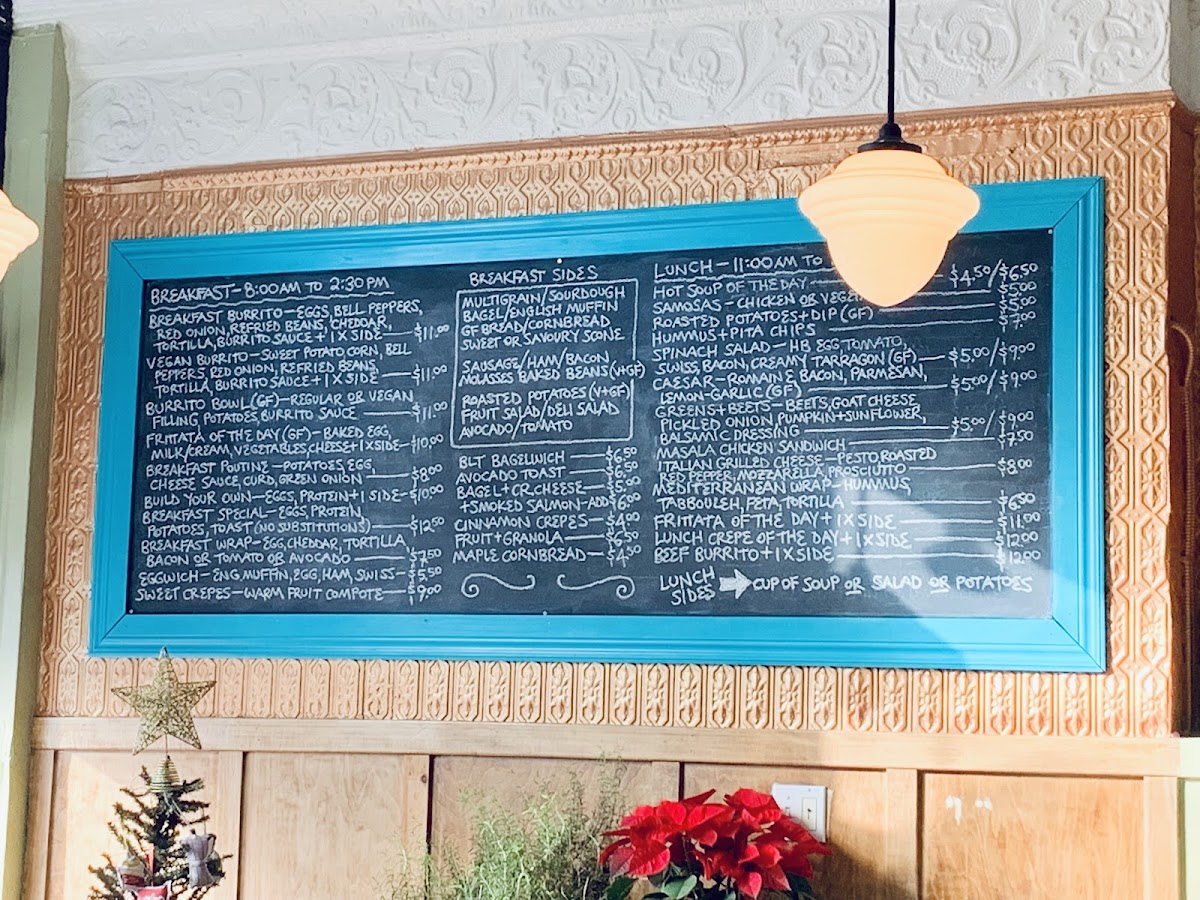 BREAKFAST-8:00AM TO 2:30 PM
BREAKFAST BURRITO-EGGS, BELL PEPPERS,
RED ONION, REFRIED BEANS, CHEDDAR,
TORTILLA, BURRITO SAUCE + 1 X SIDE — $11.00
VEGAN BURRITO-SWEET POTATO, CORN, BELL
PEPPERS, RED ONION, REFRIED BEANS,
TORTILLA, BURRITO SAUCE + 1 X SIDE — $11.00
BURRITO BOWL (GF)-REGULAR OR VEGAN
FILLING, POTATOES, BURRITO SAUCE — $11.00
FRITTATA OF THE DAY (GF)-BAKED EGG,
MILK/CREAM, VEGETABLES, CHEESE + 1 X SIDE-$10.00
BREAKFAST POUTINE-POTATOES, EGG,
CHEESE SAUCE, CURD, GREEN ONION — $8.00
BUILD YOUR OWN-EGGS, PROTEIN + 1 SIDE-$10.00
BREAKFAST SPECIAL-EGGS, PROTEIN,
POTATOES, TOAST (NO SUBSTITUTIONS) — $12.50
BREAKFAST WRAP-EGG, CHEDDAR, TORTILLA
BACON OR TOMATO OR AVOCADO — $7.50
EGGWICH-ENG MUFFIN, EGG, HAM, SWISS-$5.50
SWEET CREPES-WARM FRUIT COMPOTE — $9.00
BREAKFAST SIDES
MULTIGRAIN/SOURDOUGH
BAGEL/ENGLISH MUFFIN
GF BREAD/CORNBREAD
SWEET OR SAVOURY SCONE
SAUSAGE/HAM/BACON
MOLASSES BAKED BEANS (V+GF)
ROASTED POTATOES (V+GF)
FRUIT SALAD/DELI SALAD
AVOCADO/TOMATO
BLT BAGELWICH — $6.50
AVOCADO TOAST — $6.50
BAGEL + CR. CHEESE — $5.00
+SMOKED SALMON-ADD $6.00
CINNAMON CREPES — $4.00
FRUIT + GRANOLA — $6.50
MAPLE CORNBREAD — $4.50
LUNCH-11:00AM TO
HOT SOUP OF THE DAY — $4.50/$6.50
SAMOSAS-CHICKEN OR — $5.00
ROASTED POTATOES + DIP (GF) — $5.00
HUMMUS + PITA CHIPS — $7.00
SPINACH SALAD-HB EGG, TOMATO,
SWISS, BACON, CREAMY TARRAGON (GF) — $5.00/$9.00
CAESAR-ROMAINE, BACON, PARMESAN,
LEMON-GARLIC (GF) — $5.00/$9.00
GREENS + BEETS-BEETS, GOAT CHEESE
PICKLED ONION, PUMPKIN + SUNFLOWER,
BALSAMIC DRESSING — $5.00/$9.00
MASALA CHICKEN SANDWICH — $7.50
ITALIAN GRILLED CHEESE-PESTO, ROASTED
RED PEPPER, MOZZARELLA, PROSCIUTTO — $8.00
MEDITERRANEAN WRAP-HUMMUS,
TABBOULEH, FETA, TORTILLA — $6.50
FRITTATA OF THE DAY + 1 X SIDE — $11.00
LUNCH CREPE OF THE DAY + 1 X SIDE — $12.00
BEEF BURRITO + 1 X SIDE — $12.00
LUNCH SIDES → CUP OF SOUP OR SALAD OR POTATOES